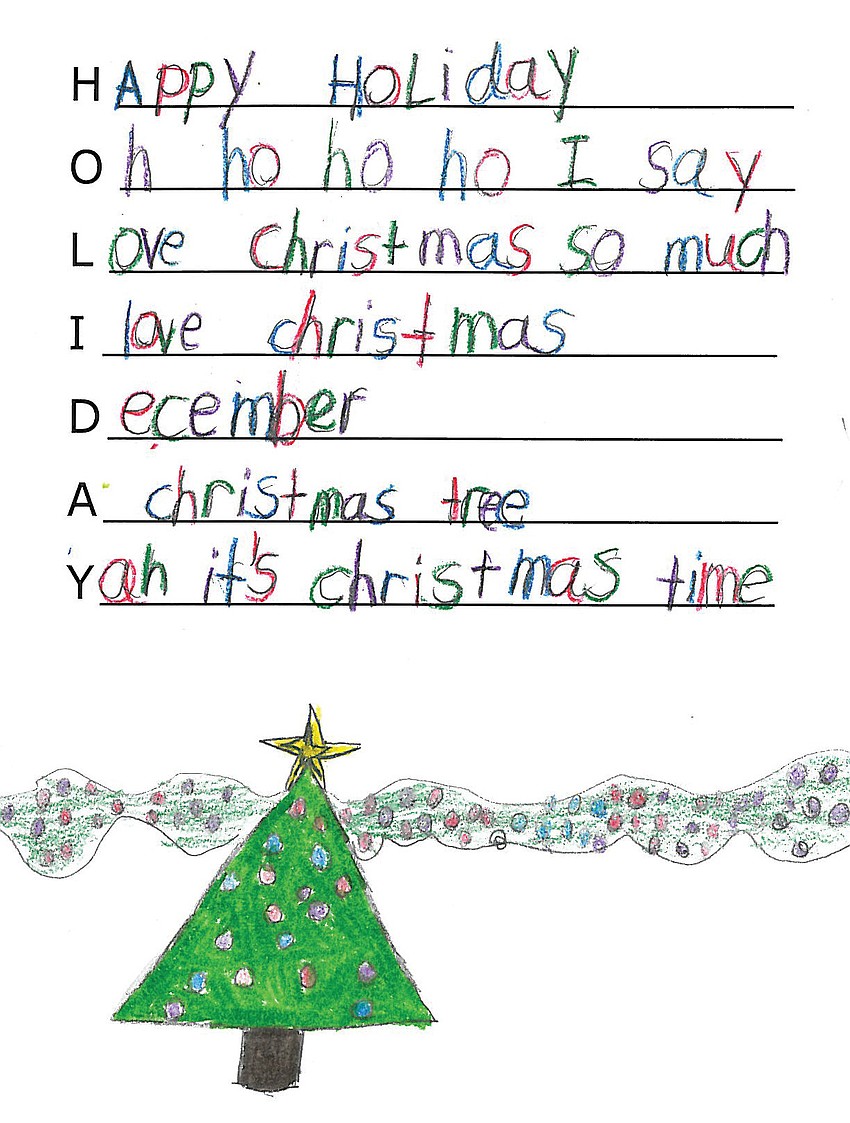 HAppy HoLiday
Oh ho ho ho I say
Love christmas so much
I love christmas
December
A christmas tree
Yah it's christmas time